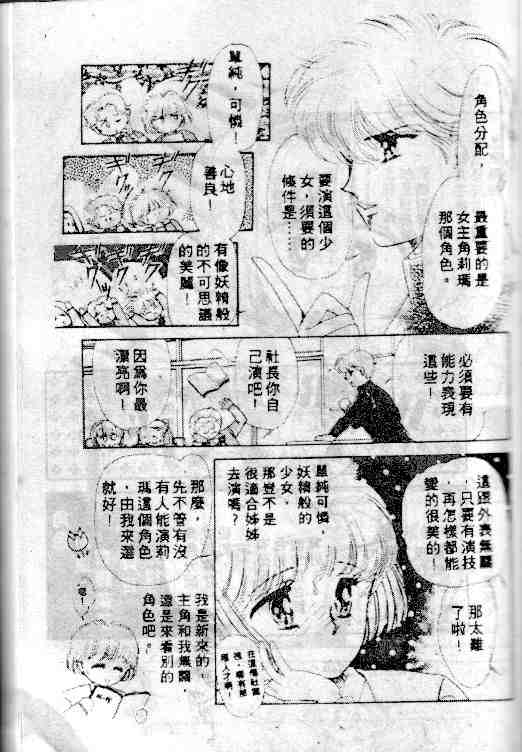 角色分配，
最重要的是
女主角莉瑪
那個角色。
要演這個少
女，須要的
條件是……
單純，可憐！
心地
善良！
有像妖精般
的不可思議
的美麗！
必須要有
能力表現
這些！
社長你自
己演吧！
因為你最
漂亮啊！
這跟外表無關
，只要有演技
，再怎樣都能
變的很美的！
那太難
了啦！
單純可憐，
妖精般的
少女，
那豈不是
很適合姊姊
去演嗎？
那麼，
先不管有沒
有人能演莉
瑪這個角色
，由我來選
就好！
我是新來的，
主角和我無關，
還是來看別的
角色吧。
嗯！
在這個社團